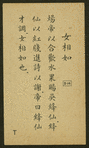 女相如
煬帝以合歡水果賜吳絳仙絳
仙以紅牋進詩以謝帝曰絳仙
才調女相如也